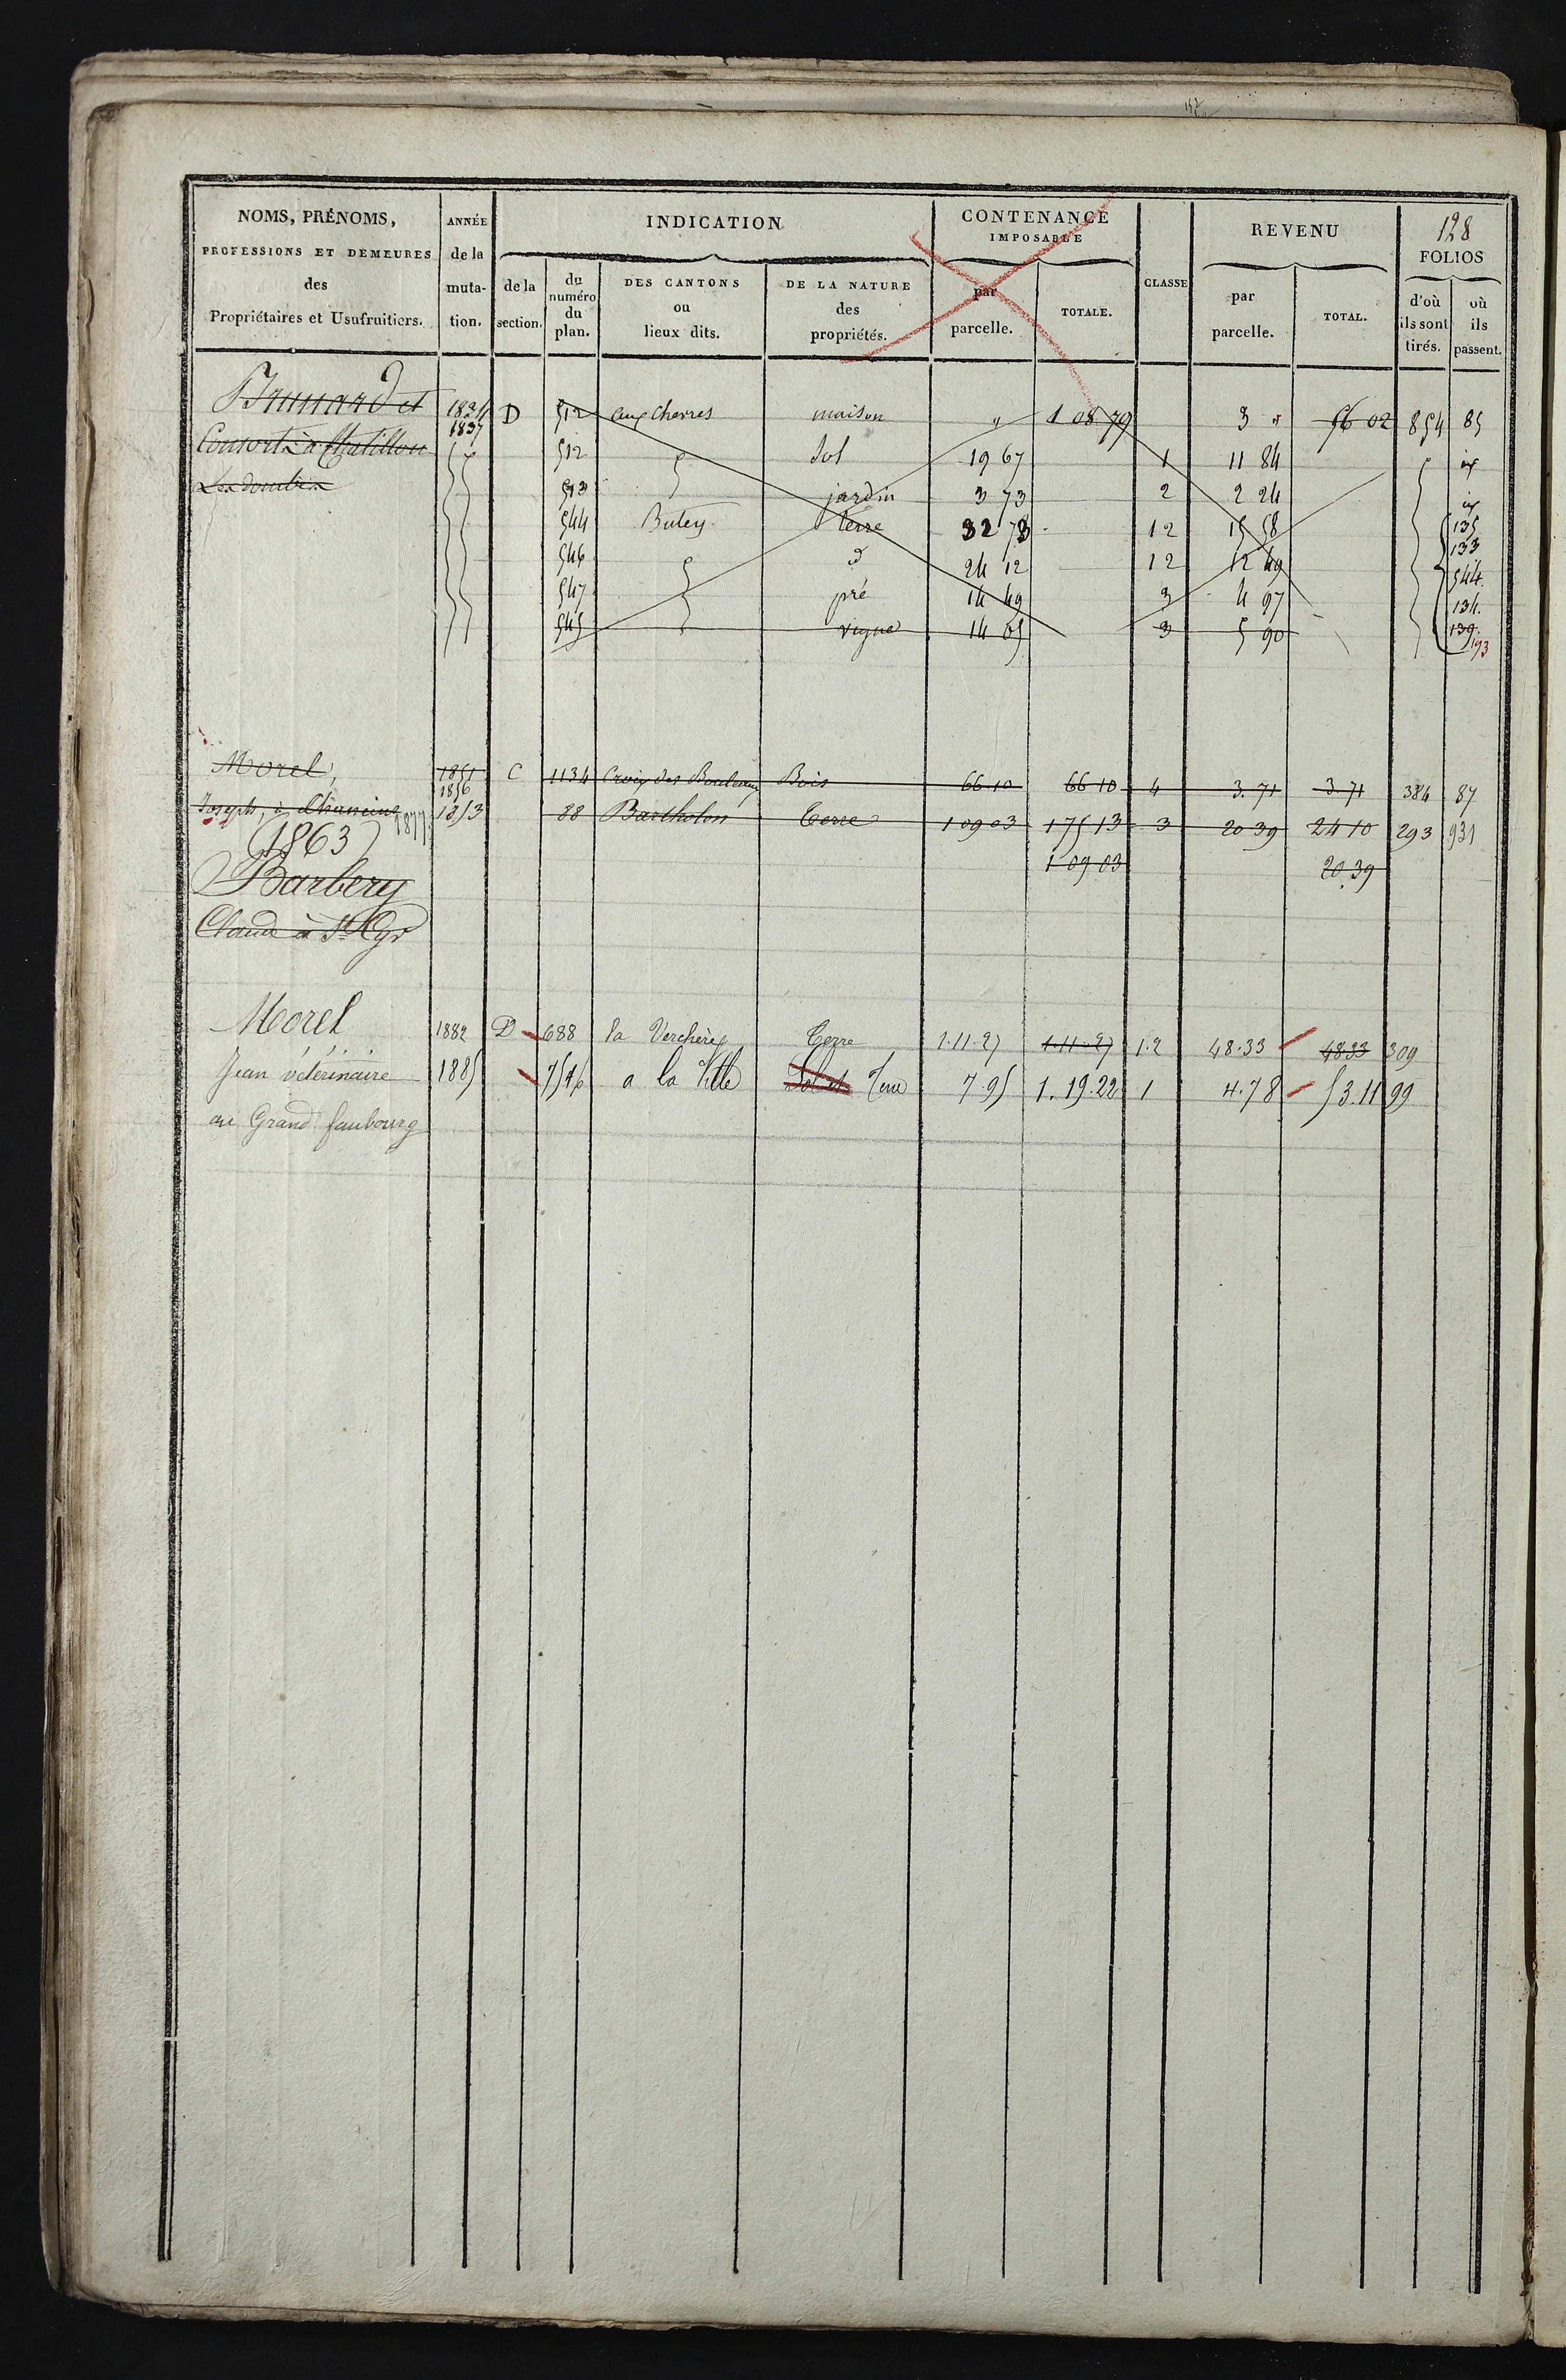 128
NOMS, PRÉNOMS, PROFESSIONS ET DEMEURES des Propriétaires et Usufruitiers.
ANNÉE de la muta- tion.
INDICATION
de la section.
du numéro du plan.
DES CANTONS ou lieux dits.
DE LA NATURE des propriétés.
CONTENANCE IMPOSABLE
par parcelle.
TOTALE.
CLASSE
REVENU
par parcelle.
TOTAL.
FOLIOS
d'où ils sont tirés.
où ils passent.
Brunard et 1834 1837 D 512 aux Cherres maison " 1 08 79 3 " 56 02 854 85
Consorts à Chatillon 512 Sol 19 67 1 11 84
Les dombes 513 jardin 3 73 2 2 24
544 Buley terre 32 73 12 15 58 135
546 d 24 12 12 12 49 133 544
547 pré 14 49 3 4 97 134
545 vigne 14 05 3 5 90 139 193
Morel, 1851 1856 C 1134 Croix des Bouleaux Bois 66 10 66 10 4 3.71 3 71 384 87
Joseph, à 1877 1853 88 Bartholon Terre 1 09 03 175 13 3 20 39 24 10 293 931
(1863) 1 09 03 20.39
Barbery
Claude à St Cyr
Morel 1882 D 688 la Verchère Terre 1.11.27 1.11.27 1.2 48.33 48.33 309
Jean vétérinaire 1885 754 a la Ville Sol et Terre 7.95 1.19.22 1 4.78 53.11 99
au Grand faubourg